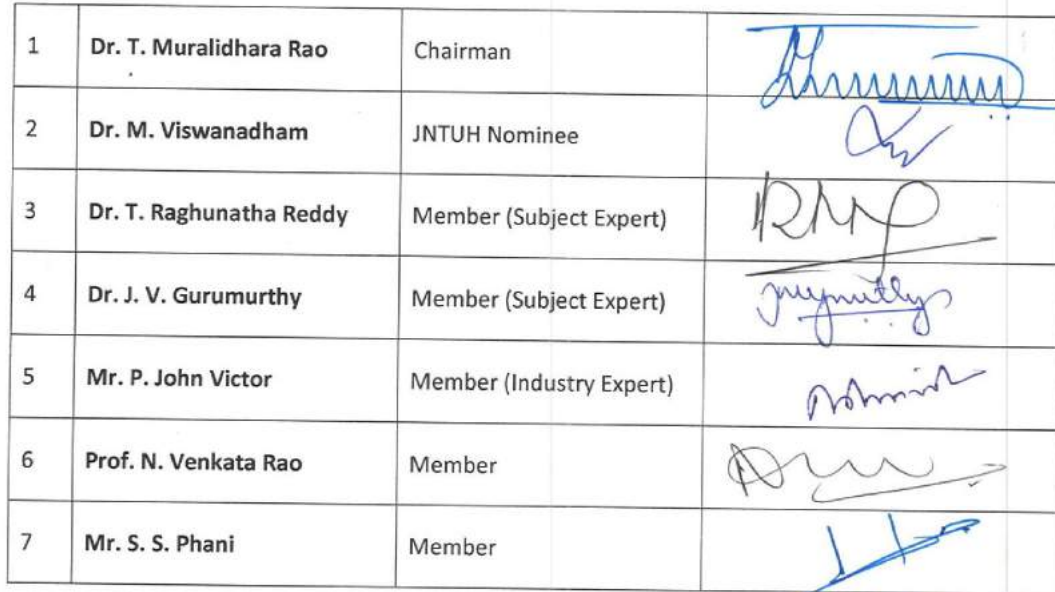 1 Dr. T. Muralidhara Rao Chairman
2 Dr. M. Viswanadham JNTUH Nominee
3 Dr. T. Raghunatha Reddy Member (Subject Expert)
4 Dr. J. V. Gurumurthy Member (Subject Expert)
5 Mr. P. John Victor Member (Industry Expert)
6 Prof. N. Venkata Rao Member
7 Mr. S. S. Phani Member